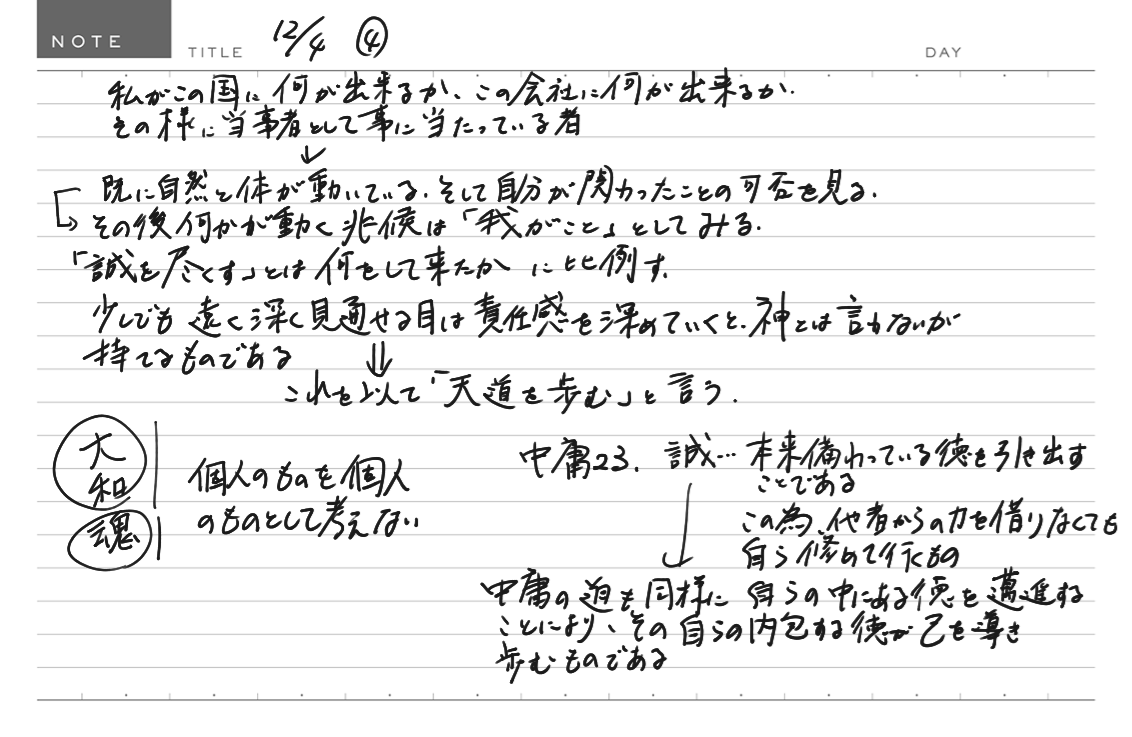 NOTE
TITLE 12/4 ④
DAY
私がこの国に何が出来るか、この会社に何が出来るか.
その様に当事者として事に当たっている者
↓
既に自然と体が動いている.そして自分が関わったことの可否を見る.
その後何かが動く兆候は「我がこと」としてみる.
「誠を尽くす」とは何をして来たかに比例す.
少しでも遠く深く見通せる目は責任感を深めていくと、神とは言わないが
持てるものである
⇓
これを以て「天道を歩む」と言う.
大和
魂
個人のものを個人
のものとして考えない
中庸23. 誠… 本来備わっている徳を引き出す
ことである
この為、他者からの力を借りなくても
自ら修めて行くもの
中庸の道も同様に自らの中にある徳を邁進する
ことにより、その自らの内包する徳が己を導き
歩むものである